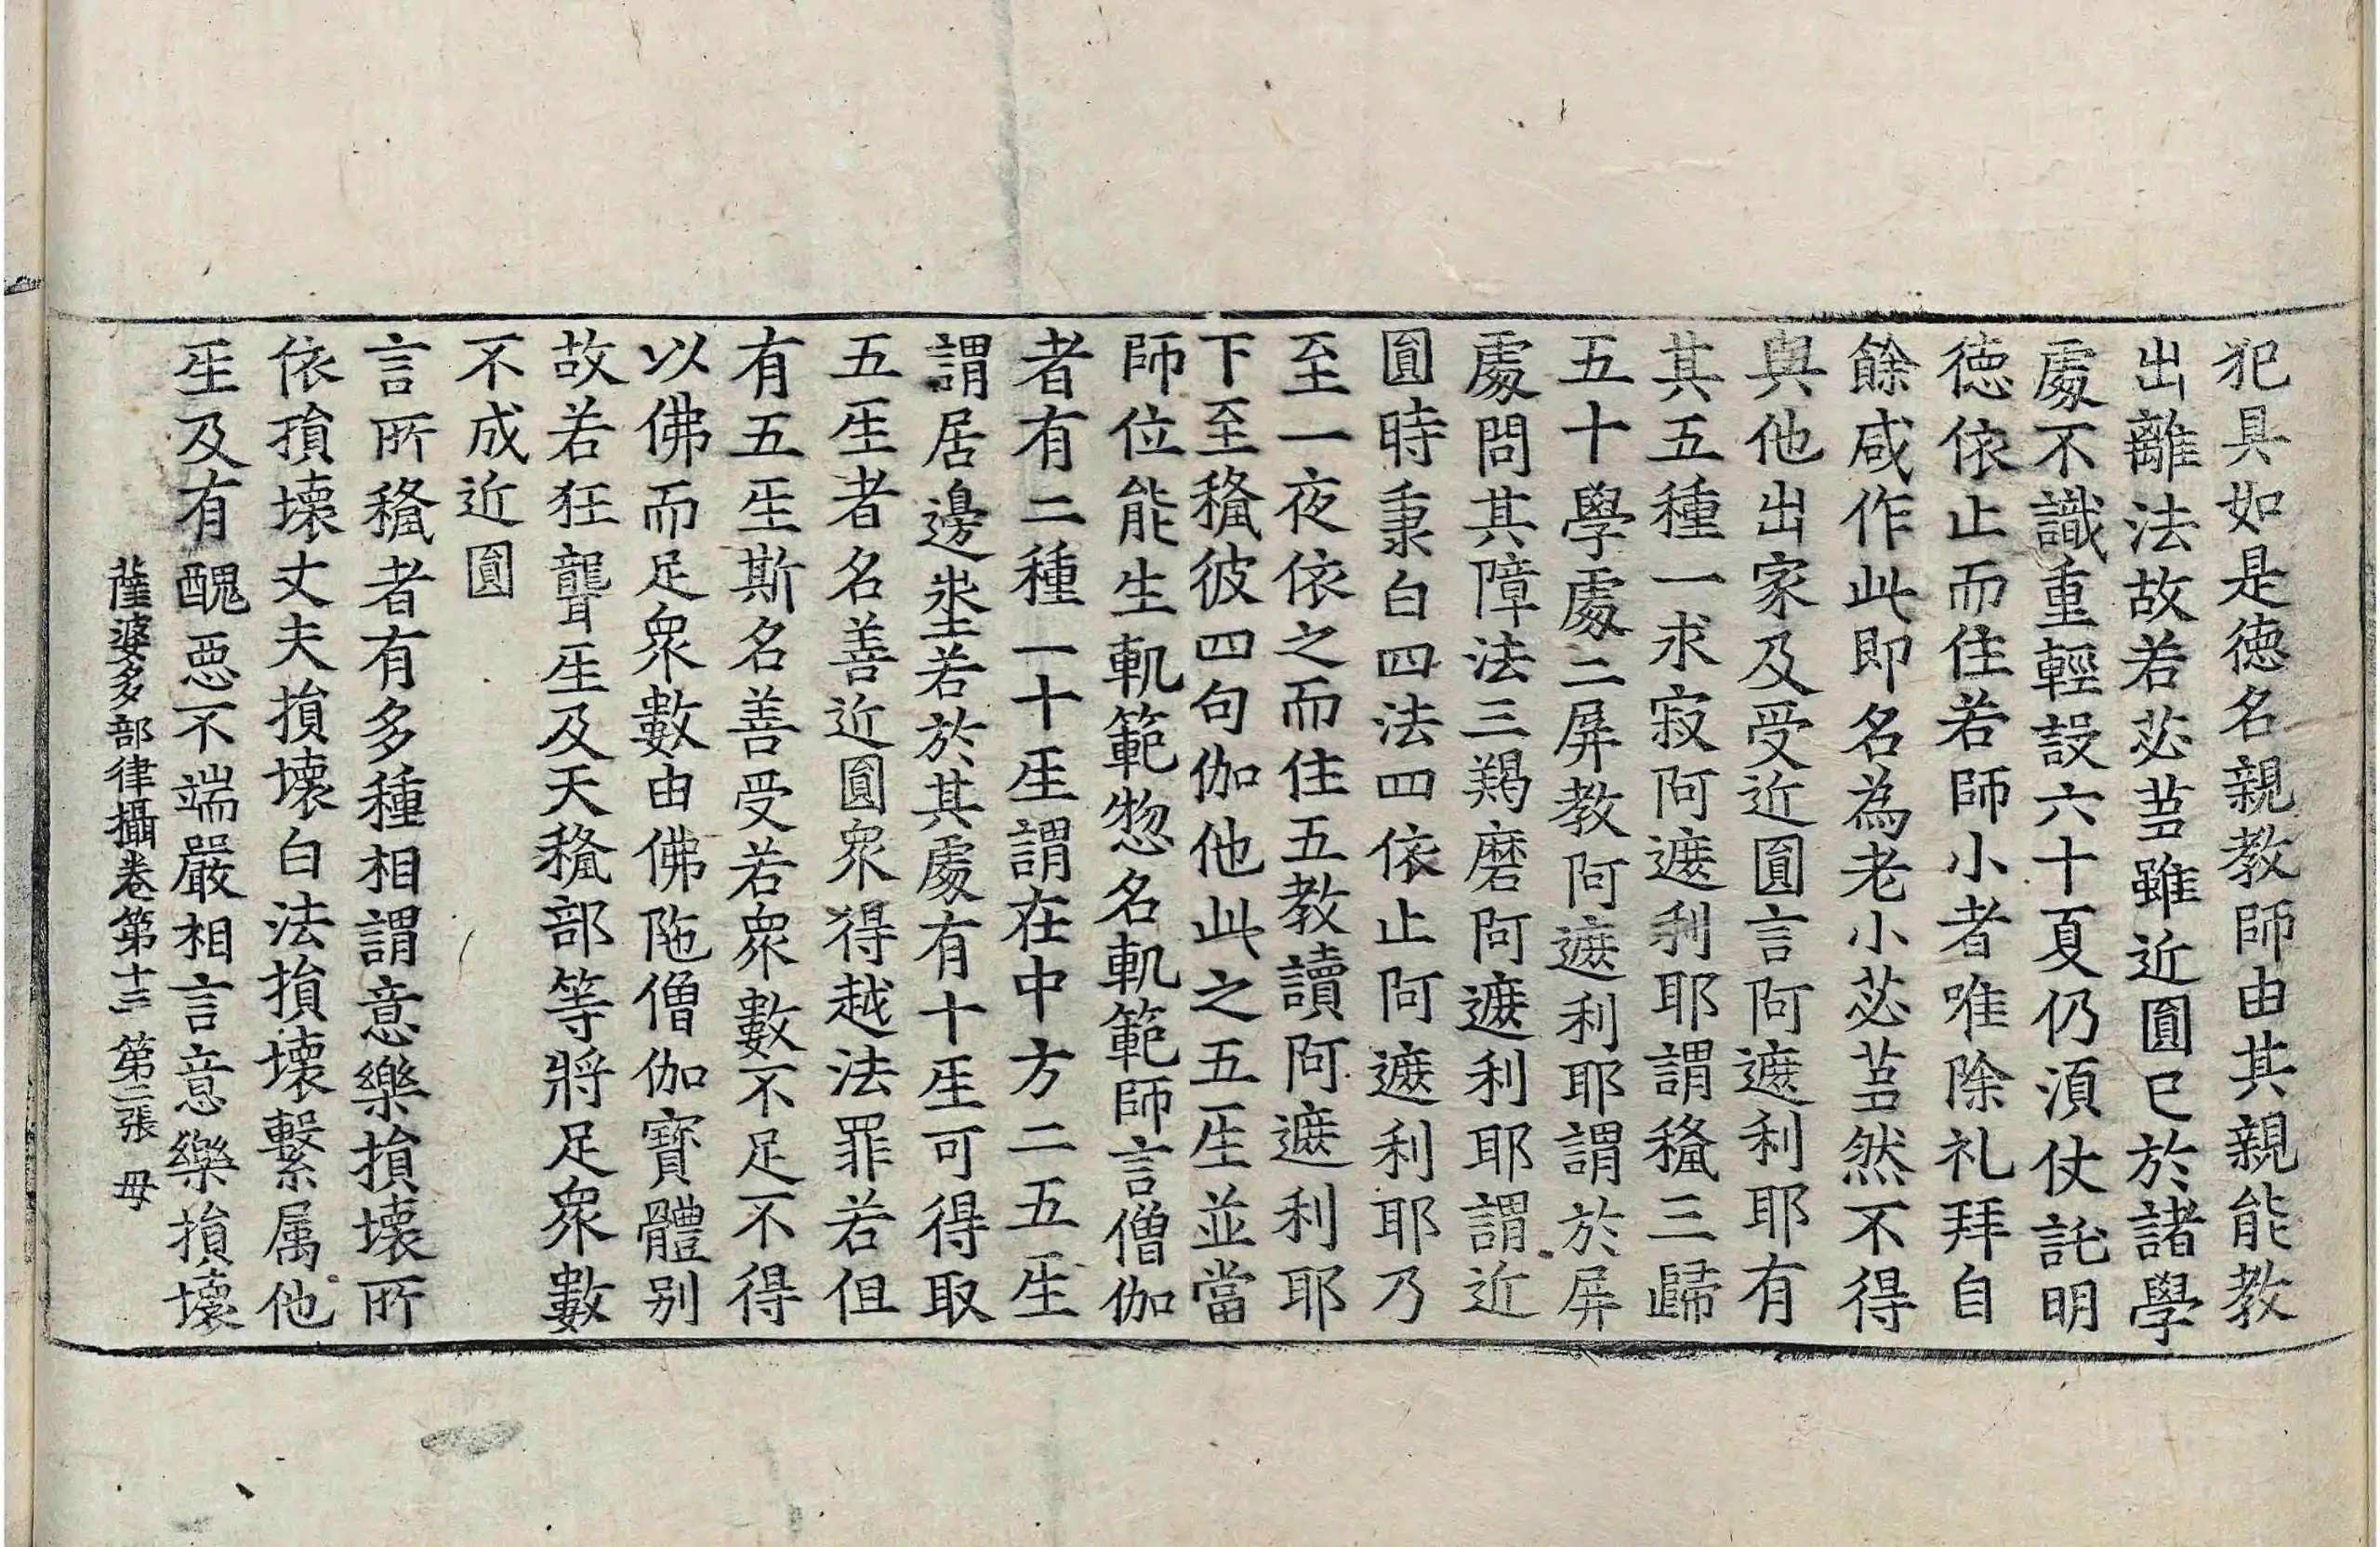 犯具如是徳名親教師由其親能教
出離法故若苾蒭雖近圓已於諸學
處不識重輕設六十夏仍湏仗託明
徳依止而住若師小者唯除礼拜自
餘咸作此即名為老小苾蒭然不得
與他出家及受近圓言阿遮利耶有
其五種一求寂阿遮利耶謂稱三歸
五十學處二屏教阿遮利耶謂於屏
處問其障法三羯磨阿遮利耶謂近
圓時秉白四法四依止阿遮利耶乃
至一夜依之而住五教讀阿遮利耶
下至稱彼四句伽他此之五座並當
師位能生軌範惣名軌範師言僧伽
者有二種一十座謂在中方二五生
謂居邊坐若於其處有十座可得取
五座者名善近圓衆得越法罪若但
有五座斯名善受若衆數不足不得
以佛而足衆數由佛陁僧伽寶體别
故若狂聾座及天稱部等將足衆數
不成近圓
言所稱者有多種相謂意樂損壞所
依損壞丈夫損壞白法損壞繫属他
座及有醜惡不端嚴相言意樂損壞
薩婆多部律攝卷第十三 第二張 毋